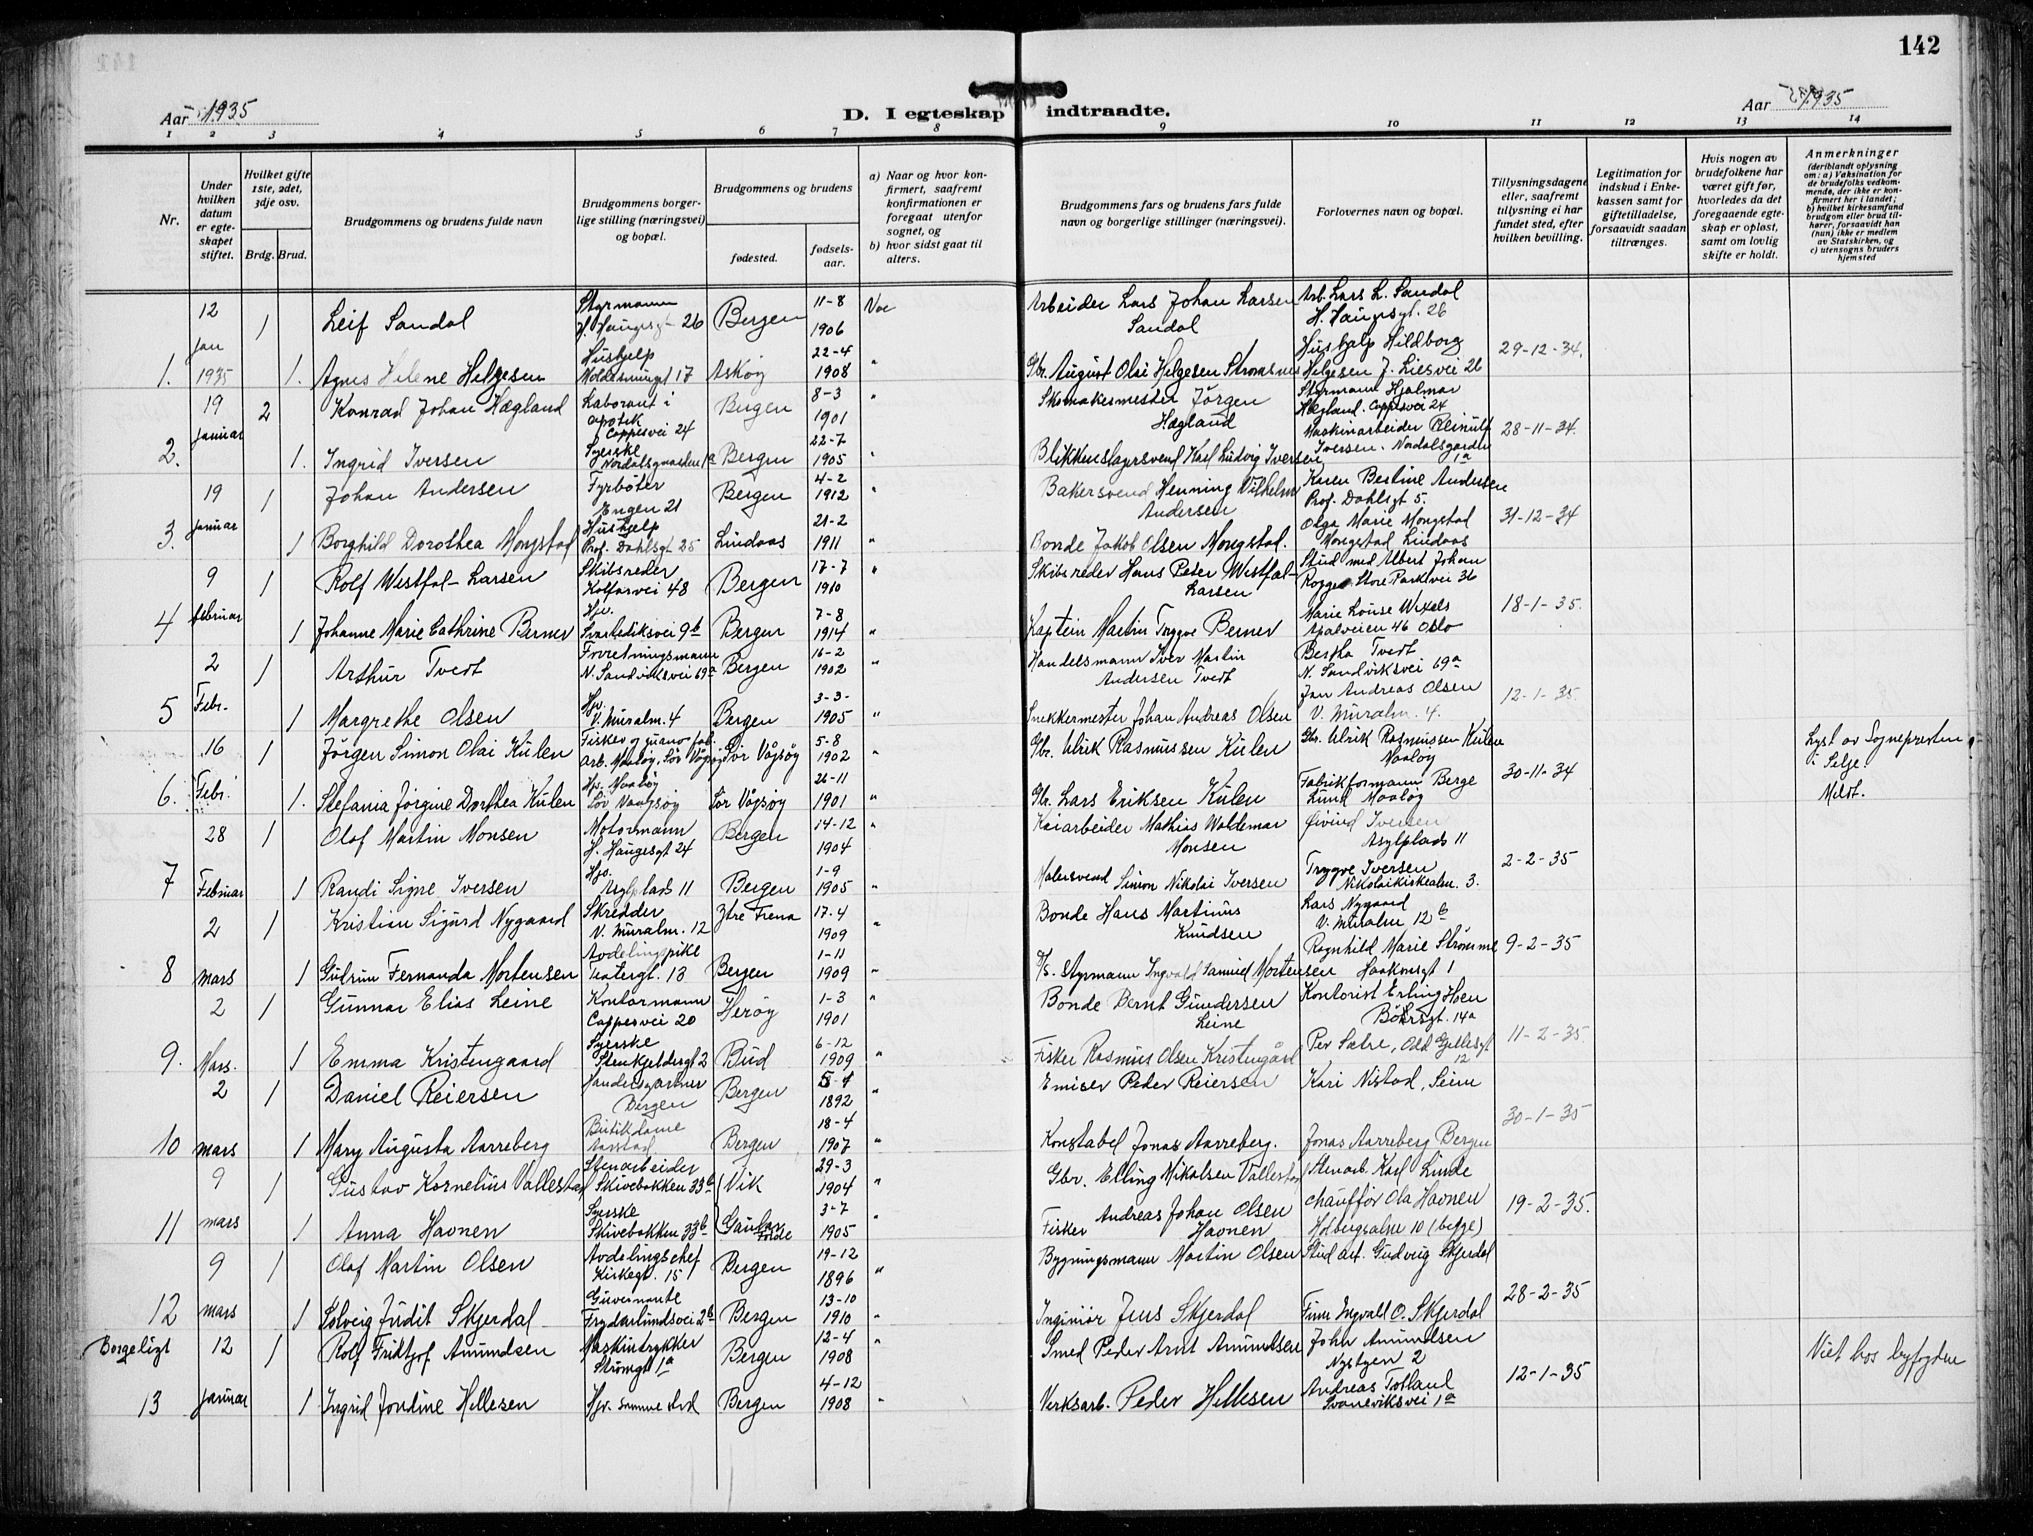 142
Aar 1935
D. I egteskap indtraadte.
Aar 1935
1 2 3 4 5 6 7 8 9 10 11 12 13 14
Nr.
Under hvilken datum er egteskapet stiftet.
Hvilket gifte 1ste, 2det, 3dje osv.
Brdg. Brud.
Brudgommens og brudens fulde navn
Brudgommens borgerlige stilling (næringsvei) og bopæl.
Brudgommens og brudens
fødested.
fødselsaar.
a) Naar og hvor konfirmert, saafremt konfirmationen er foregaat utenfor sognet, og
b) hvor sidst gaat til alters.
Brudgommens fars og brudens fars fulde navn og borgerlige stillinger (næringsvei).
Forlovernes navn og bopæl.
Tillysningsdagene eller, saafremt tillysning ei har fundet sted, efter hvilken bevilling.
Legitimation for indskud i Enkekassen samt for giftetilladelse, forsaavidt saadan tiltrænges.
Hvis nogen av brudefolkene har været gift før, hvorledes da det foregaaende egteskap er opløst, samt om lovlig skifte er holdt.
Anmerkninger
(deriblandt oplysning om: a) Vaksination for de brudefolks vedkommende, der ikke er konfirmert her i landet; b) hvilket kirkesamfund brudgom eller brud tilhører, forsaavidt han (hun) ikke er medlem av Statskirken, og c) utensogns bruders hjemsted
12 1 Leif Sandal Styrmann H. Haugesgt 26 Bergen 11-8 1906 Arbeider Lars Johan Larsen Sandal Arb. Lars L. Sandal H. Haugesgt. 26
1. jan 1935 1. Agnes Helene Helgesen Hushjelp 17 Askøy 22-4 1908 " Gbr. August Olai Helgesen Strømsnes Hushjelp Hildborg Helgesen J. Liesvei 26 29-12-34.
19 2 Konrad Johan Hægland Laborant i apotek Cappesvei 24 Bergen 8-3 1901 " Skomakermester Jörgen Hægland Styrmann Hjalmar Hægland. Cappesvei 24
2. januar 1. Ingrid Iversen Syerske Nordalsgaarden 1a Bergen 22-7 1905 " Blikkenslagersvend Karl Ludvig Iversen Maskinarbeider Iversen. Nordalsgarden 1a 28-11-34.
19 1 Johan Andersen Fyrböter Engen 21 Bergen 4-2 1912 " Bakersvend Henning Vilhelm Andersen Karen Bertine Andersen Prof. Dahlsgt 5.
3. januar 1 Borghild Dorothea Mongstad Hushjelp Prof. Dahlsgt 25 Lindaas 21-2 1911 " Bonde Jakob Olsen Mongstad. Olga Marie Mongstad Mongstad Lindaas 31-12-34
9 1 Rolf Westfal-Larsen Skibsreder Kalfarvei 48 Bergen 17-7 1910 " Skibsreder Hans Peter Westfal-Larsen Stud med Albert Johan Rogge Store Parkvei 36
4 februar 1 Johanne Marie Cathrine Berner Hjv. Svartediksvei 9b Bergen 7-8 1914 " Kaptein Martin Trygve Berner Marie Louse Wexels Apalveien 46 Oslo 18-1-35.
2 1 Arthur Tvedt Forretningsmann N. Sandviksvei 69a Bergen 16-2 1902 " Handelsmann Iver Martin Andersen Tvedt Bertha Tvedt N. Sandviksvei 69a
5 Febr. 1 Margrethe Olsen Hjv. V. Muralm. 4 Bergen 3-3- 1905 " Snekkermester Johan Andreas Olsen Jan Andreas Olsen V. Muralm. 4. 12-1-35.
16 1 Jörgen Simon Olai Kulen Fisker og guano fab. arb. Maaløy, Sör Vågsöy Sör Vågsöy 5-8 1902 " Gbr. Ulrik Rasmussen Kulen Gbr. Ulrik Rasmussen Kulen Maaløy Lyst av Sogneprester i Selje. Meldt.
6. Febr. 1. Stefania Jörgine Dorthea Kulen Hjv. Maaløy Sör Vaagsøy Sör Vågsøy 26-11 1901 " Gbr. Lars Eriksen Kulen Fabrikformann Berge Lund Maaløy 30-11-34
28 1 Olaf Martin Monsen Motormann H. Haugesgt 24 Bergen 14-12 1904 " Kaiarbeider Mathias Waldemar Monsen Øivind Iversen Asylplads 11
7 Februar 1 Randi Signe Iversen Hjv. Asylplads 11 Bergen 1-9 1905 " Malersvend Simon Nikolai Iversen Trygve Iversen Nikolaikirkealm. 3. 2-2-35
2 1 Kristian Sigurd Nygaard Skredder V. Muralm. 12 Ytre Frena 17-4 1909 " Bonde Hans Martinus Knudsen Lars Nygaard V. Muralm 12b
8 mars 1 Gudrun Fernanda Mortensen Avdelingspike Teatergt. 13 Bergen 1-11 1909 " Styrmann Ingvald Samuel Mortensen Ragnhild Marie Strømme Haakonsgt 1 9-2-35
2 1 Gunnar Elias Leine Kontormann Cappesvei 20 Herøy 1-3 1901 " Bonde Bernt Gundersen Leine Kontorist Erling Hoen Böhrsgt. 14a
9. Mars. 1 Emma Kristengaard Syerske Stenkjeldergt 2 Bud 6-12 1909 " Fisker Rasmus Olsen Kristengård Per Sætre, Odd Gjellesgt 12 11-2-35.
2 1 Daniel Reiersen Handelsgartner Bergen Bergen 5-4 1892 " Emisær Peder Reiersen Kari Nistad, Seim
10 mars 1 Mary Augusta Aarreberg Butikdame Aarstad Bergen 18-4 1907 " Konstabel Jonas Aarreberg. Jonas Aarreberg Bergen 30-1-35
9 1 Gustav Kornelius Vallestad Stenarbeider Skivebakken 33b Vik 29-3 1904 " Gbr. Elling Mikalsen Vallestad Stenarb. Karl Linde
11 mars 1 Anna Havnen Syerske Skivebakken 33b Gaular 3-7 1905 " Fisker Andreas Johan Olsen Havnen Chauffør Ola Havnen Holbergsalm 10 (begge) 19-2-35.
9 1 Olaf Martin Olsen Avdelingschef Kirkegt. 15 Bergen 19-12 1896 " Bygningsmann Martin Olsen Stud art. Gudveig Skjerdal
12 mars 1 Solveig Judit Skjerdal Guvernante Frydenlundsvei 2b Bergen 13-10 1910 " Ingeniør Jens Skjerdal Finn Ingvald O. Skjerdal 28-2-35
Borgeligt 12 1 Rolf Fridtjof Amundsen Maskintrykker Strømgt 1a Bergen 12-4 1908 " Smed Peder Arnt Amundsen John Amundsen Nystgen 2 Viet hos byfogden
13 januar 1 Ingrid Jondine Hellesen Hjv. samme sted Bergen 4-12 1908 " Verksarb. Peder Hellesen Andreas Totland Svaneviksvei 1a 12-1-35